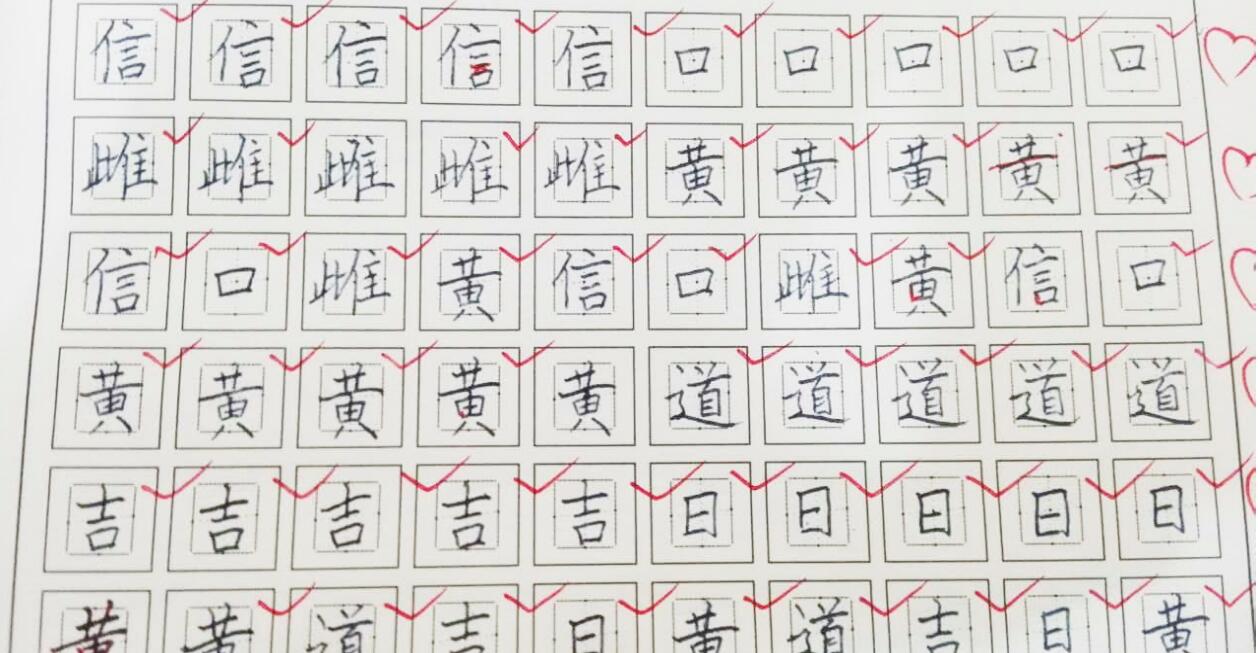 信信信信信口口口口口
雌雌雌雌雌黄黄黄黄黄
信口雌黄信口雌黄信口
黄黄黄黄黄道道道道道
吉吉吉吉吉日日日日日
黄黄道吉日黄道吉日黄